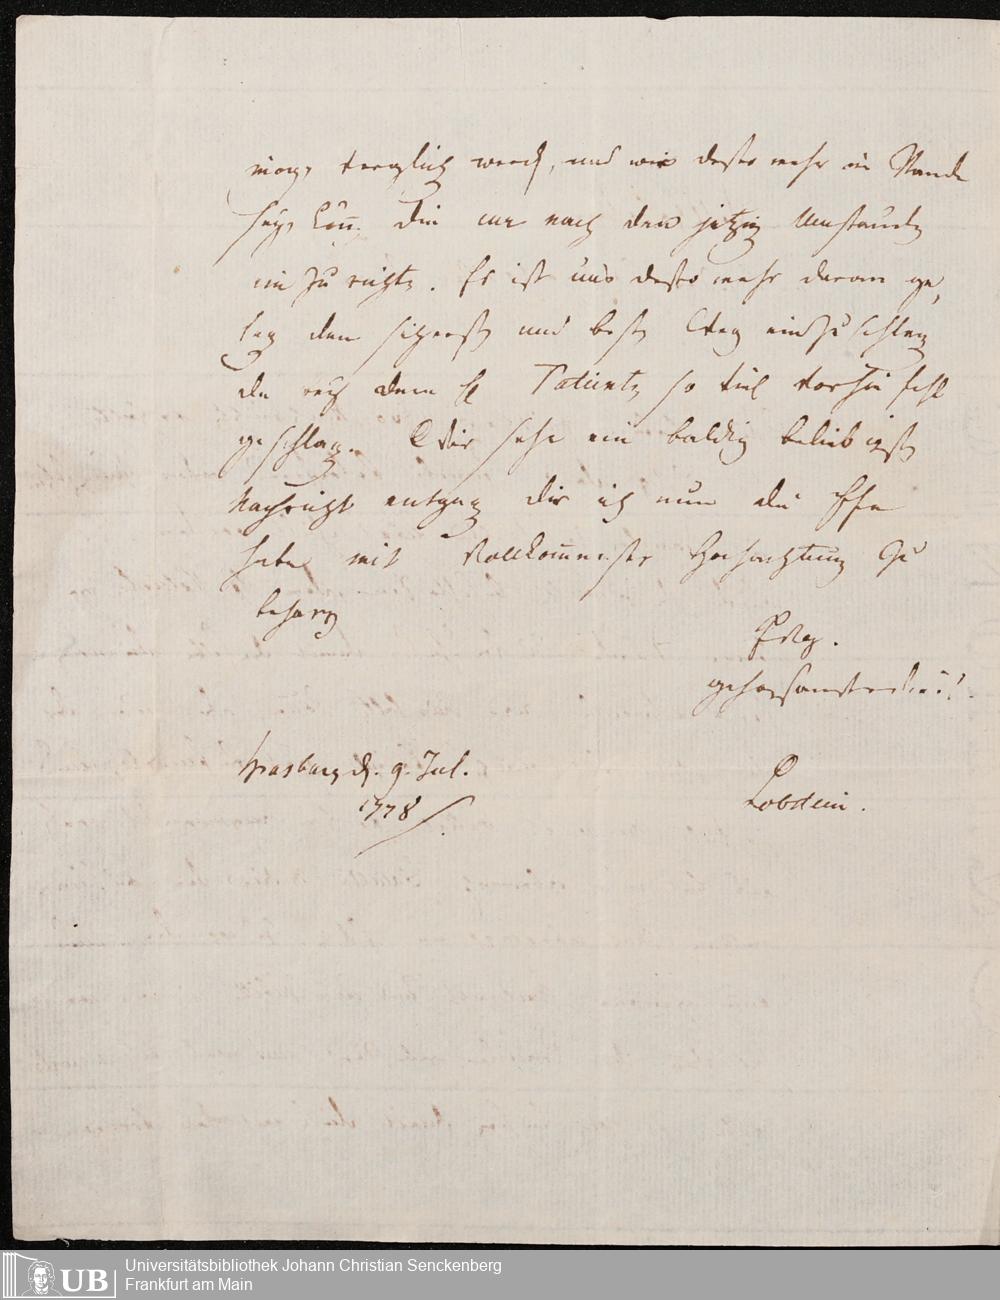 mög, verglich werd, und wir desto mehr im Stande
seyn könn. die cur nach den jetzig Umständ
einzurichte. Es ist uns desto mehr daran ge,
leg den sicherst und best Weg einzuschlag
da auch dem H Patient so viel vorhin fehl
geschlag. Wir sehe ein baldig beliebigst
Nachricht entgeg dir ich nun die Ehre
habe mit vollkommenster Hochachtung zu
beharr
Ew.
gehorsamster
Strasburg d. 9. Jul.
1778
Lobstein.
UB
Universitätsbibliothek Johann Christian Senckenberg
Frankfurt am Main